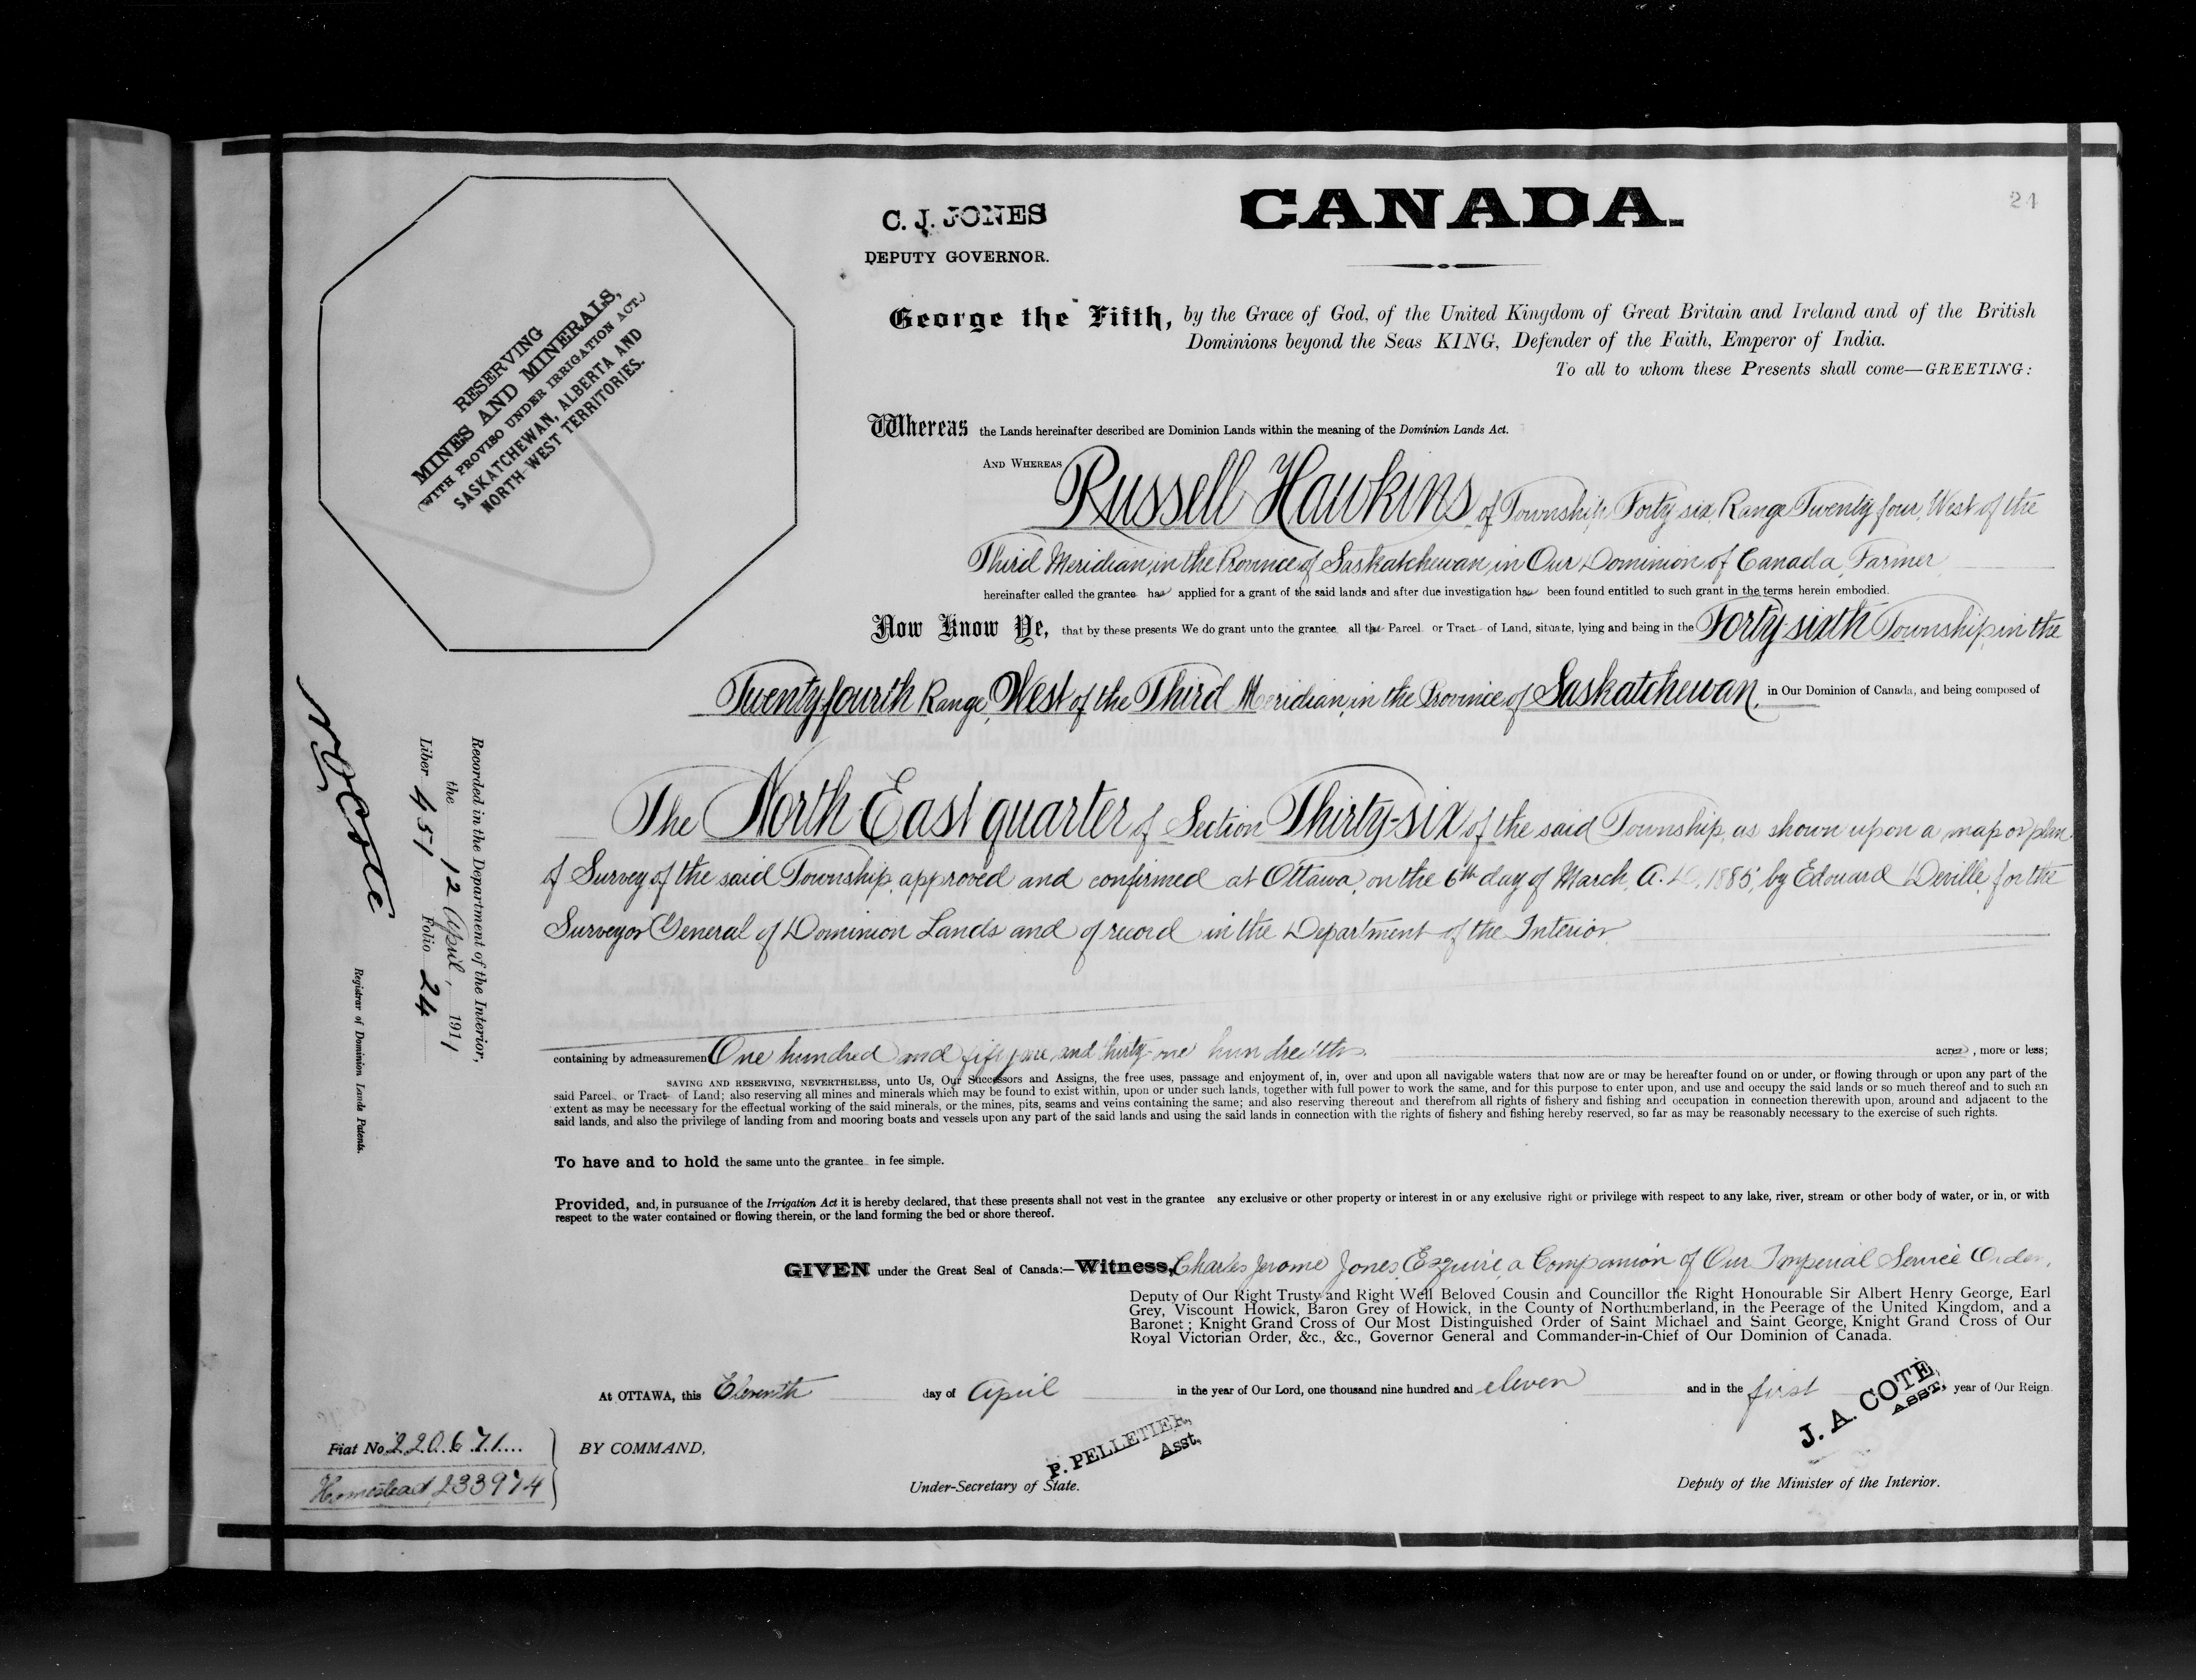 24
CANADA.
C. J. JONES
DEPUTY GOVERNOR.
RESERVING
MINES AND MINERALS,
(WITH PROVISO UNDER IRRIGATION ACT.)
SASKATCHEWAN, ALBERTA AND
NORTH-WEST TERRITORIES.
George the Fifth, by the Grace of God, of the United Kingdom of Great Britain and Ireland and of the British
Dominions beyond the Seas KING, Defender of the Faith, Emperor of India.
To all to whom these Presents shall come—GREETING:
Whereas the Lands hereinafter described are Dominion Lands within the meaning of the Dominion Lands Act.
AND WHEREAS Russell Hawkins, of Township Forty six, Range Twenty four, West of the
Third Meridian, in the Province of Saskatchewan, in Our Dominion of Canada, Farmer
hereinafter called the grantee has applied for a grant of the said lands and after due investigation has been found entitled to such grant in the terms herein embodied.
Now Know Ye, that by these presents We do grant unto the grantee all that Parcel or Tract of Land, situate, lying and being in the Forty sixth Township, in the
Twenty fourth Range, West of the Third Meridian, in the Province of Saskatchewan, in Our Dominion of Canada, and being composed of
The North East quarter of Section Thirty-six of the said Township, as shown upon a map or plan
of Survey of the said Township, approved and confirmed at Ottawa, on the 6th day of March, A.D. 1885, by Edouard Deville, for the
Surveyor General of Dominion Lands and of record in the Department of the Interior
containing by admeasurement One hundred and fifty one and thirty-one hundredths acres, more or less;
SAVING AND RESERVING, NEVERTHELESS, unto Us, Our Successors and Assigns, the free uses, passage and enjoyment of, in, over and upon all navigable waters that now are or may be hereafter found on or under, or flowing through or upon any part of the
said Parcel or Tract of Land; also reserving all mines and minerals which may be found to exist within, upon or under such lands, together with full power to work the same, and for this purpose to enter upon, and use and occupy the said lands or so much thereof and to such an
extent as may be necessary for the effectual working of the said minerals, or the mines, pits, seams and veins containing the same; and also reserving thereout and therefrom all rights of fishery and fishing and occupation in connection therewith upon, around and adjacent to the
said lands, and also the privilege of landing from and mooring boats and vessels upon any part of the said lands and using the said lands in connection with the rights of fishery and fishing hereby reserved, so far as may be reasonably necessary to the exercise of such rights.
To have and to hold the same unto the grantee in fee simple.
Provided, and, in pursuance of the Irrigation Act it is hereby declared, that these presents shall not vest in the grantee any exclusive or other property or interest in or any exclusive right or privilege with respect to any lake, river, stream or other body of water, or in, or with
respect to the water contained or flowing therein, or the land forming the bed or shore thereof.
GIVEN under the Great Seal of Canada:—Witness, Charles Jerome Jones, Esquire, a Companion of Our Imperial Service Order,
Deputy of Our Right Trusty and Right Well Beloved Cousin and Councillor the Right Honourable Sir Albert Henry George, Earl
Grey, Viscount Howick, Baron Grey of Howick, in the County of Northumberland, in the Peerage of the United Kingdom, and a
Baronet; Knight Grand Cross of Our Most Distinguished Order of Saint Michael and Saint George, Knight Grand Cross of Our
Royal Victorian Order, &c., &c., Governor General and Commander-in-Chief of Our Dominion of Canada.
At OTTAWA, this Eleventh day of April in the year of Our Lord, one thousand nine hundred and eleven and in the first year of Our Reign
BY COMMAND,
P. PELLETIER,
Asst.
Under-Secretary of State.
J. A. COTÉ,
ASST.
Deputy of the Minister of the Interior.
Fiat No. 220671
Homestead 233974
Recorded in the Department of the Interior,
the 12 April, 1911
Liber 451 Folio 24
Registrar of Dominion Lands Patents.